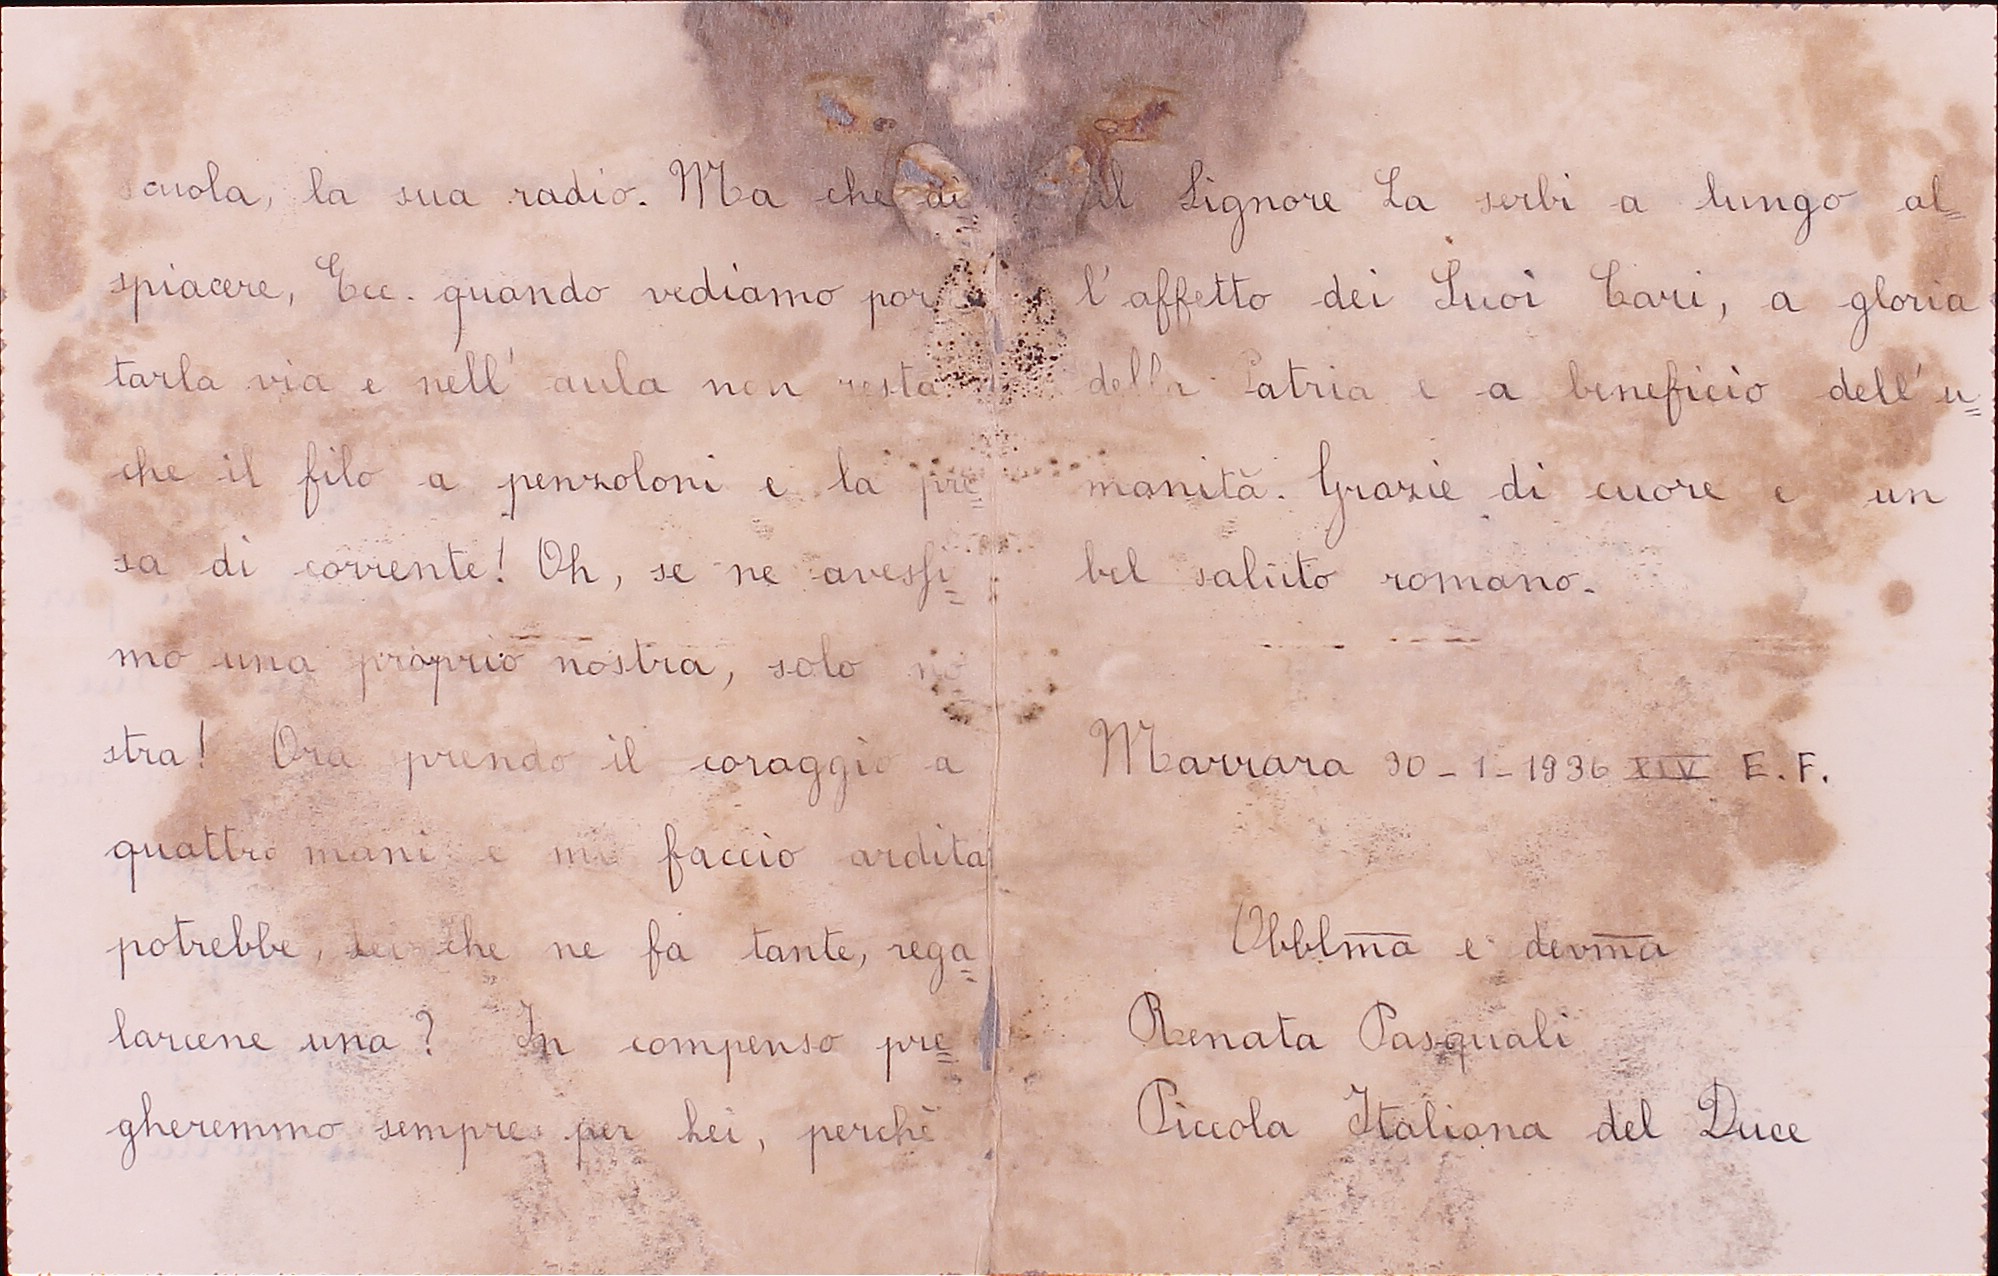 scuola, la sua radio. Ma che di
spiacere, Ecc. quando vediamo por
tarla via e nell' aula non resta
che il filo a penzoloni e la pre=
sa di corrente! Oh, se ne avessi=
mo una proprio nostra, solo no
stra! Ora prendo il coraggio a
quattro mani e mi faccio ardita
potrebbe, Lei che ne fa tante, rega=
larcene una? In compenso pre=
gheremmo sempre per Lei, perchè
il Signore La serbi a lungo al=
l'affetto dei Suoi Cari, a gloria
della Patria e a beneficio dell'u=
manità. Grazie di cuore e un
bel saluto romano.
Marrara 30-1-1936 XIV E.F.
Obblma e devma
Renata Pasquali
Piccola Italiana del Duce